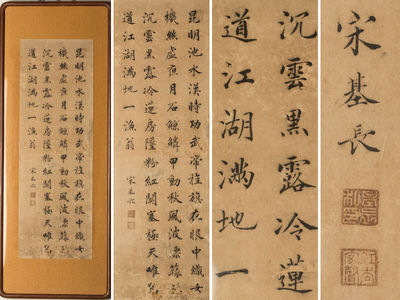 昆明池水漢時功武帝旌旗在眼中織女
機絲虛夜月石鯨鱗甲動秋風波漂菰米
沉雲黑露冷蓮房墜粉紅關塞極天唯鳥
道江湖滿地一漁翁
宋基長
昆明池水漢時功武帝旌旗在眼中織女
機絲虛夜月石鯨鱗甲動秋風波漂菰米
沉雲黑露冷蓮房墜粉紅關塞極天唯鳥
道江湖滿地一漁翁
宋基長
沉雲黑露冷蓮
道江湖滿地一
宋基長